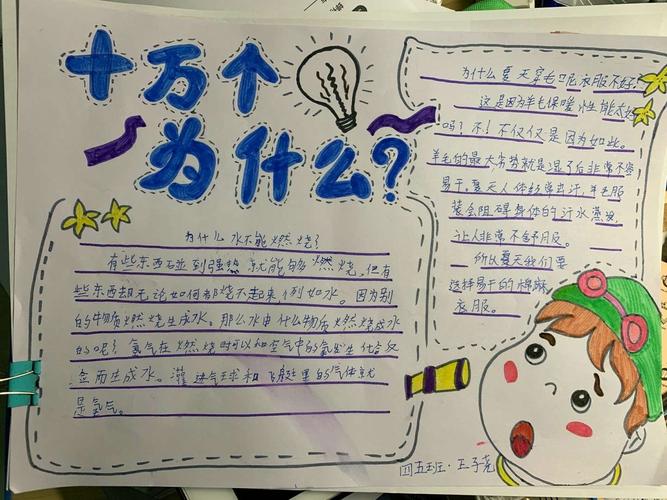 十万个
为什么?
为什么水不能燃烧?
有些东西碰到强热就能够燃烧,但有
些东西却无论如何都烧不起来,例如水。因为别
的物质燃烧生成水。那么水由什么物质燃烧成水
的呢?氢气在燃烧时可以和空气中的氧发生化合反
应而生成水。灌进气球和飞艇里的气体就
是氢气。
为什么夏天穿毛呢衣服不好?
这是因为羊毛保暖性能太好
吗?不!不仅仅是因为如此。
羊毛的最大劣势就是湿了后非常不容
易干,夏天人体经常出汗,羊毛服
装会阻碍身体的汗水蒸发,
让人非常不舒服。
所以夏天我们要
选择易干的棉麻
衣服。
四五班·王子尧